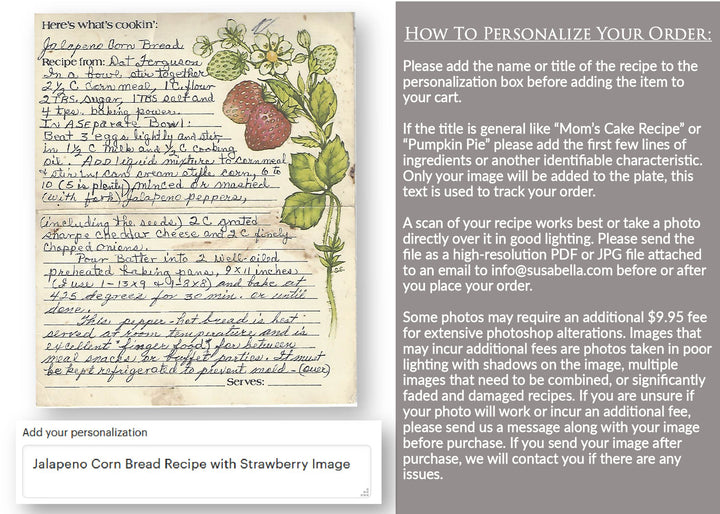 Here's what's cookin':
Jalapeno Corn Bread
Recipe from: Dat Ferguson
In a bowl, stir together
2 ½ C corn meal, 1 C. flour
2 TBS. sugar, 1 TBS salt and
4 tps. baking power.
In A SEparate Bowl:
Beat 3 eggs lightly and stir
in 1 ½ C milk and ½ C cooking
oil. Add liquid mixture to cornmeal
& stir in, can cream style corn, 6 to
10 (5 is plenty) minced or mashed
(with fork) jalapeno peppers,
(including the seeds) 2 C grated
sharpe cheddar cheese and 2 C finely
chopped onions.
Pour Batter into 2 well-oiled
preheated baking pans, 9 x 11 inches
(I use 1-13x9 & 1-8x8) and bake at
425 degrees for 30 min. or until
done.
This pepper-hot bread is best
served at room temperature and is
excellent "finger food" for between
meal snacks or buffet parties. It must
be kept refrigerated to prevent mold - (over)
Serves:
Add your personalization
Jalapeno Corn Bread Recipe with Strawberry Image
How To Personalize Your Order:
Please add the name or title of the recipe to the
personalization box before adding the item to
your cart.
If the title is general like “Mom’s Cake Recipe” or
“Pumpkin Pie” please add the first few lines of
ingredients or another identifiable characteristic.
Only your image will be added to the plate, this
text is used to track your order.
A scan of your recipe works best or take a photo
directly over it in good lighting. Please send the
file as a high-resolution PDF or JPG file attached
to an email to info@susabella.com before or after
you place your order.
Some photos may require an additional $9.95 fee
for extensive photoshop alterations. Images that
may incur additional fees are photos taken in poor
lighting with shadows on the image, multiple
images that need to be combined, or significantly
faded and damaged recipes. If you are unsure if
your photo will work or incur an additional fee,
please send us a message along with your image
before purchase. If you send your image after
purchase, we will contact you if there are any
issues.